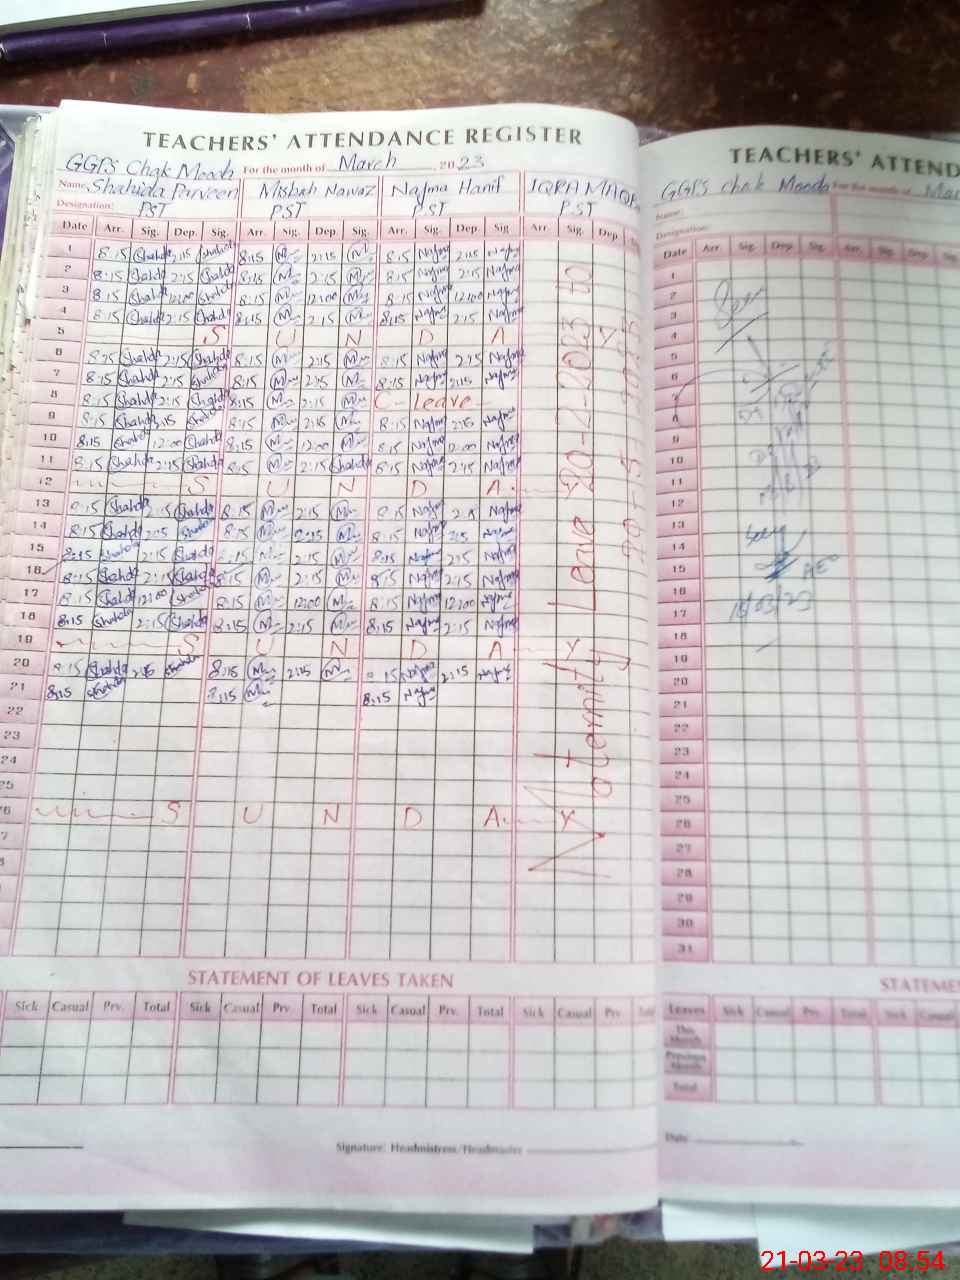 TEACHERS' ATTENDANCE REGISTER
GGPS Chak Moods For the month of March 2023
Name: Shahida Parveen Misbah Nawaz Najma Hanif IQRA
Designation: PST PST PST PST
Date Arr. Sig. Dep. Sig. Arr. Sig. Dep. Sig. Arr. Sig. Dep. Sig Arr Sig. Dep
1 8:15 Shahida 2:15 Shahida 8:15 M 2:15 M 8:15 Najma 2:15 Najma
2 8:15 Shahida 2:15 Shahida 8:15 M 2:15 M 8:15 Najma 2:15 Najma
3 8:15 Shahida 12:00 Shahida 8:15 M 12:00 M 8:15 Najma 12:00 Najma
4 8:15 Shahida 2:15 Shahida 8:15 M 2:15 M 8:15 Najma 2:15 Najma
5 S U N D A Y
6 8:15 Shahida 2:15 Shahida 8:15 M 2:15 M 8:15 Najma 2:15 Najma
7 8:15 Shahida 2:15 Shahida 8:15 M 2:15 M 8:15 Najma 2:15 Najma
8 8:15 Shahida 2:15 Shahida 8:15 M 2:15 M C- Leave -
9 8:15 Shahida 2:15 Shahida 8:15 M 2:15 M 8:15 Najma 2:15 Najma
10 8:15 Shahida 12:00 Shahida 8:15 M 12:00 M 8:15 Najma 12:00 Najma
11 8:15 Shahida 2:15 Shahida 8:15 M 2:15 Shahida 8:15 Najma 2:15 Najma
12 S U N D A Y
13 8:15 Shahida 2:15 Shahida 8:15 M 2:15 M 8:15 Najma 2:15 Najma
14 8:15 Shahida 2:15 Shahida 8:15 M 2:15 M 8:15 Najma 2:15 Najma
15 8:15 Shahida 2:15 Shahida 8:15 M 2:15 M 8:15 Najma 2:15 Najma
16 8:15 Shahida 2:15 Shahida 8:15 M 2:15 M 8:15 Najma 2:15 Najma
17 8:15 Shahida 12:00 Shahida 8:15 M 12:00 M 8:15 Najma 12:00 Najma
18 8:15 Shahida 2:15 Shahida 8:15 M 2:15 M 8:15 Najma 2:15 Najma
19 S U N D A Y
20 8:15 Shahida 2:15 Shahida 8:15 M 2:15 M 8:15 Najma 2:15 Najma
21 8:15 Shahida 8:15 M 8:15 Najma
22
23
24
25
26 S U N D A Y
Maternity Leave 20-2-2023 to
STATEMENT OF LEAVES TAKEN
Sick Casual Prv. Total Sick Casual Prv. Total Sick Casual Prv. Total Sick Casual Prv
Signature: Headmistress/Headmaster
TEACHERS' ATTEND
GGPS Chak Moods For the month of Mar
Name:
Designation:
Date Arr. Sig. Dep. Sig. Arr. Sig. Dep. Sig.
1
2
3
4
5
6
7
8
9
10
11
12
13
14
15
16
17
18
19
20
21
22
23
24
25
26
27
28
29
30
31
16/03/23
STATEME
Leaves Sick Casual Prv. Total Sick Casual
This Month
Previous Month
Total
Date
21-03-23 08:54